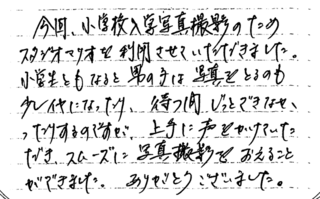 今回、小学校入学写真撮影のため
スタジオマリオを利用させていただきました。
小学生ともなると男の子は写真をとるのも
少しイヤになったり、待つ間じっとできなか
ったりするのですが、上手に声をかけていた
だき、スムーズに写真撮影をおえること
ができました。ありがとうございました。